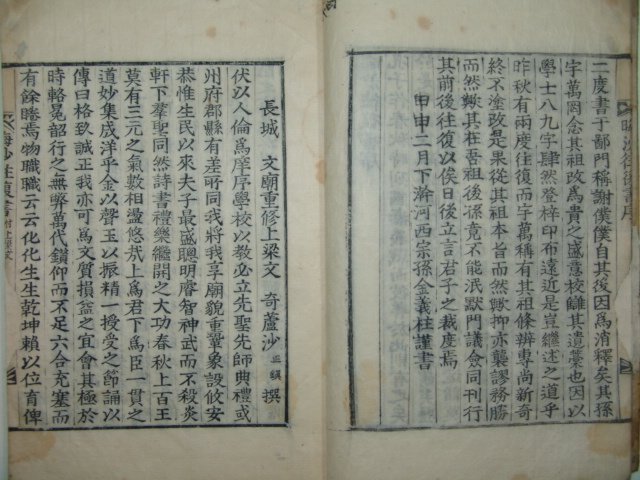 二度書于鄙門稱謝僕僕自其後因爲消釋矣其孫
字萬罔念其祖改爲貴之盛意校讎其遺藁也因以
學士八九字肆然登梓印布遠近是豈繼述之道乎
昨秋有兩度往復而字萬稱有其祖條辨專尚新奇
終不塗改是果從其祖本旨而然歟抑亦襲謬務勝
而然歟其在吾祖後孫竟不能泯默門議僉同刊行
其前後往復以俟日後立言君子之裁度焉
甲申二月下瀚河西宗孫金羲柱謹書
長城 文廟重修上梁文 奇蘆沙 正鎭 撰
伏以人倫爲庠序學校以敎必立先聖先師典禮或
州府郡縣有差所同我將我享廟貌重鞏象設攸安
恭惟生民以來夫子最盛聰明睿智神武而不殺炎
軒下羣聖同然詩書禮樂繼開之大功春秋上百王
莫有三元之氣數相盪悠哉上爲君下爲臣一貫之
道妙集成洋乎金以聲玉以振精一授受之節誦以
傳曰格致誠正我亦可爲文質損益之宜會其極於
時輅冕韶行之無弊萬代鑽仰而不足六合充塞而
有餘睠焉物職職云云化化生生乾坤賴以位育俾
往復書